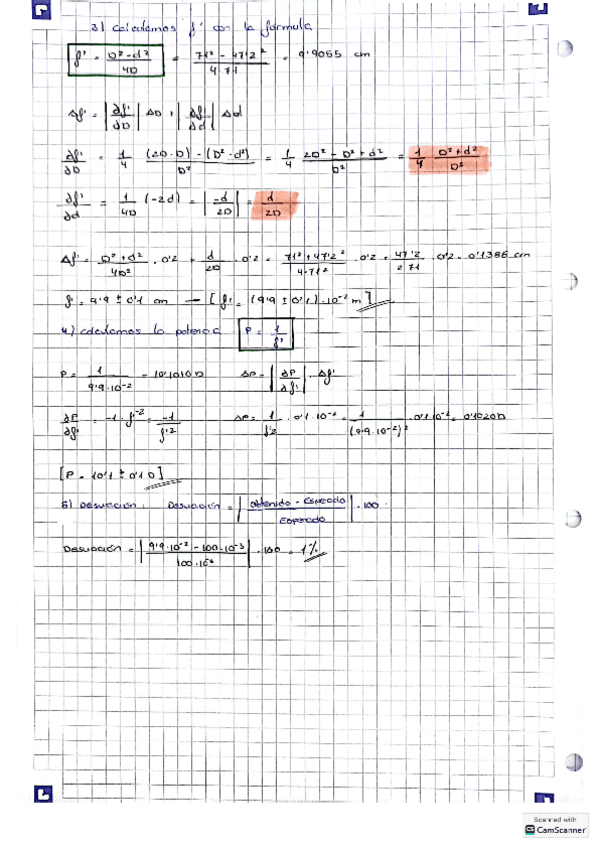 3) calculamos f' con la fórmula
f' = D² - d² / 4D = 71² - 47'2² / 4·71 = 9'9055 cm
Δf' = |∂f'/∂D| ΔD + |∂f'/∂d| Δd
∂f'/∂D = 1/4 (2D·D) - (D² - d²) / D² = 1/4 2D² - D² + d² / D² = 1/4 D² + d² / D²
∂f'/∂d = 1/4D (-2d) = |-d/2D| = d/2D
Δf' = D² + d² / 4D² · 0'2 + d/2D · 0'2 = 71² + 47'2² / 4·71² · 0'2 + 47'2 / 2·71 · 0'2 = 0'1386 cm
f' = 9'9 ± 0'1 cm → [f' = (9'9 ± 0'1)·10⁻² m]
4) calculamos la potencia P = 1/f'
P = 1 / 9'9·10⁻² = 10'1010 D ΔP = |∂P/∂f'| · Δf'
∂P/∂f' = -1·f'⁻² = -1/f'² ΔP = 1/f'² · 0'1·10⁻² = 1 / (9'9·10⁻²)² · 0'1·10⁻² = 0'1020 D
[P = 10'1 ± 0'1 D]
5) Desviación: Desviación = |obtenido - esperado / esperado| · 100
Desviación = |9'9·10⁻² - 100·10⁻³ / 100·10⁻³| · 100 = 1%
Scanned with
CamScanner